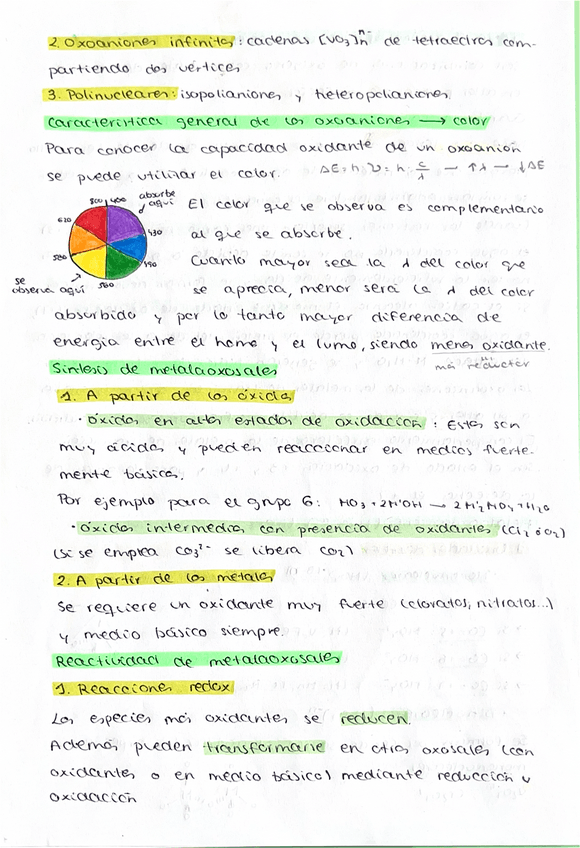 2. Oxoaniones infinitos: cadenas [VO3]n^n- de tetraedros com-
partiendo dos vértices
3. Polinucleares: isopolianiones y heteropolianiones.
Característica general de los oxoaniones → color
Para conocer la capacidad oxidante de un oxoanión
se puede utilizar el color. ΔE = h·ν = h·c/λ → ↑λ → ↓ΔE
800 400 absorbe aquí
620 430
580 490
560
se observa aquí
El color que se observa es complementario
al que se absorbe.
Cuanto mayor sea la λ del color que
se aprecia, menor será la λ del color
absorbido y por lo tanto mayor diferencia de
energía entre el homo y el lumo, siendo menos oxidante.
más reductor
Síntesis de metalaoxosales
1. A partir de los óxidos
· óxidos en altos estados de oxidación: Estos son
muy ácidos y pueden reaccionar en medios fuerte-
mente básicos.
Por ejemplo para el grupo 6: MO3 + 2M'OH → 2M'2MO4 + H2O
· óxidos intermedios con presencia de oxidantes (Cl2 ó O2)
(si se emplea CO3^2- se libera CO2)
2. A partir de los metales
Se requiere un oxidante muy fuerte (cloratos, nitratos...)
y medio básico siempre.
Reactividad de metalaoxosales
1. Reacciones redox
Las especies más oxidantes se reducen.
Además pueden transformarse en otros oxosales (con
oxidantes o en medio básico) mediante reducción u
oxidación